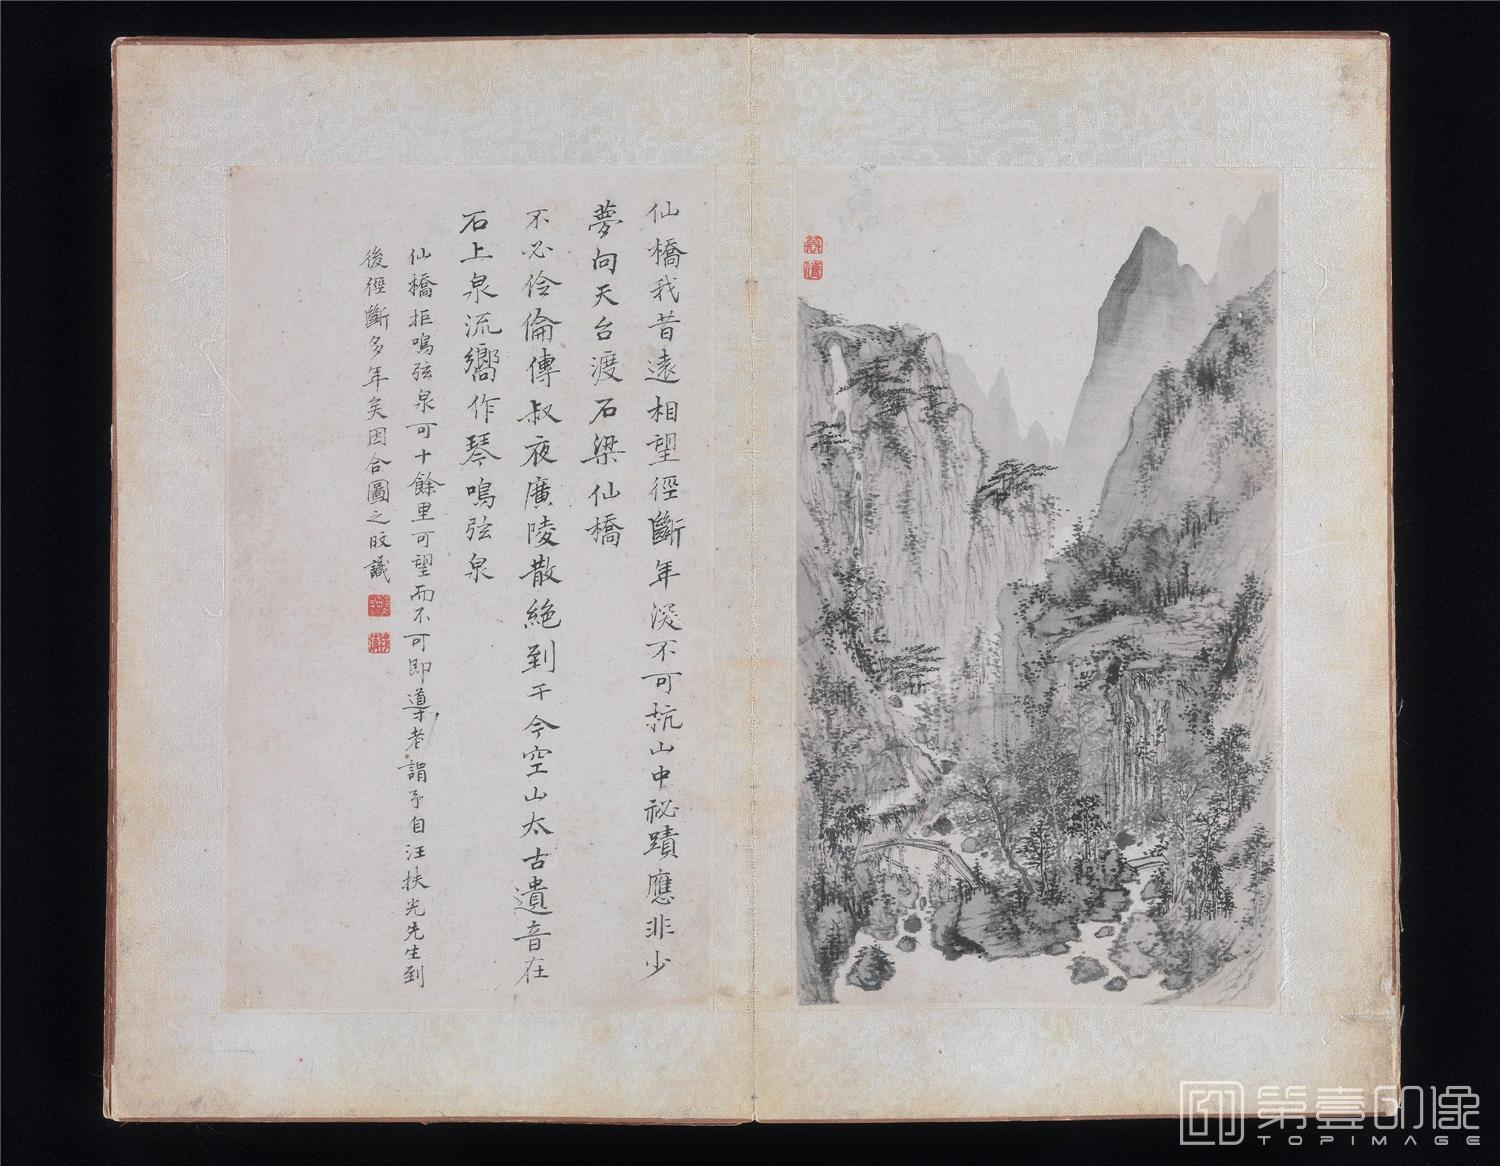 仙橋我昔遠相望徑斷年深不可抗山中祕蹟應非少
夢向天台渡石梁仙橋
不必伶倫傳叔夜廣陵散絕到于今空山太古遺音在
石上泉流嚮作琴鳴弦泉
仙橋拒鳴弦泉可十餘里可望而不可即導者謂予自汪扶光先生到
後徑斷多年矣因合圖之旼識
第壹印像
TOPIMAGE